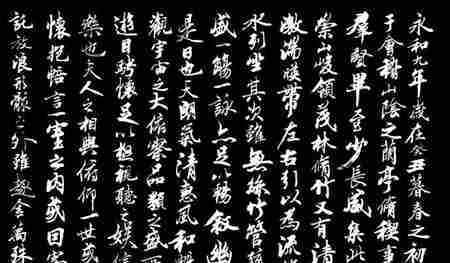 永和九年歲在癸丑暮春之初
于會稽山陰之蘭亭脩稧事
羣賢畢至少長咸集此
崇山峻領茂林脩竹又有清
激湍暎帶左右引以為流
水列坐其次雖無絲竹管
盛一觴一詠亦足以暢敘幽
是日也天朗氣清惠風和暢
觀宇宙之大俯察品類之盛
遊目騁懷足以極視聽之娛信
樂也夫人之相與俯仰一世或
懷抱悟言一室之內或因寄
託放浪形骸之外雖趣舍萬殊